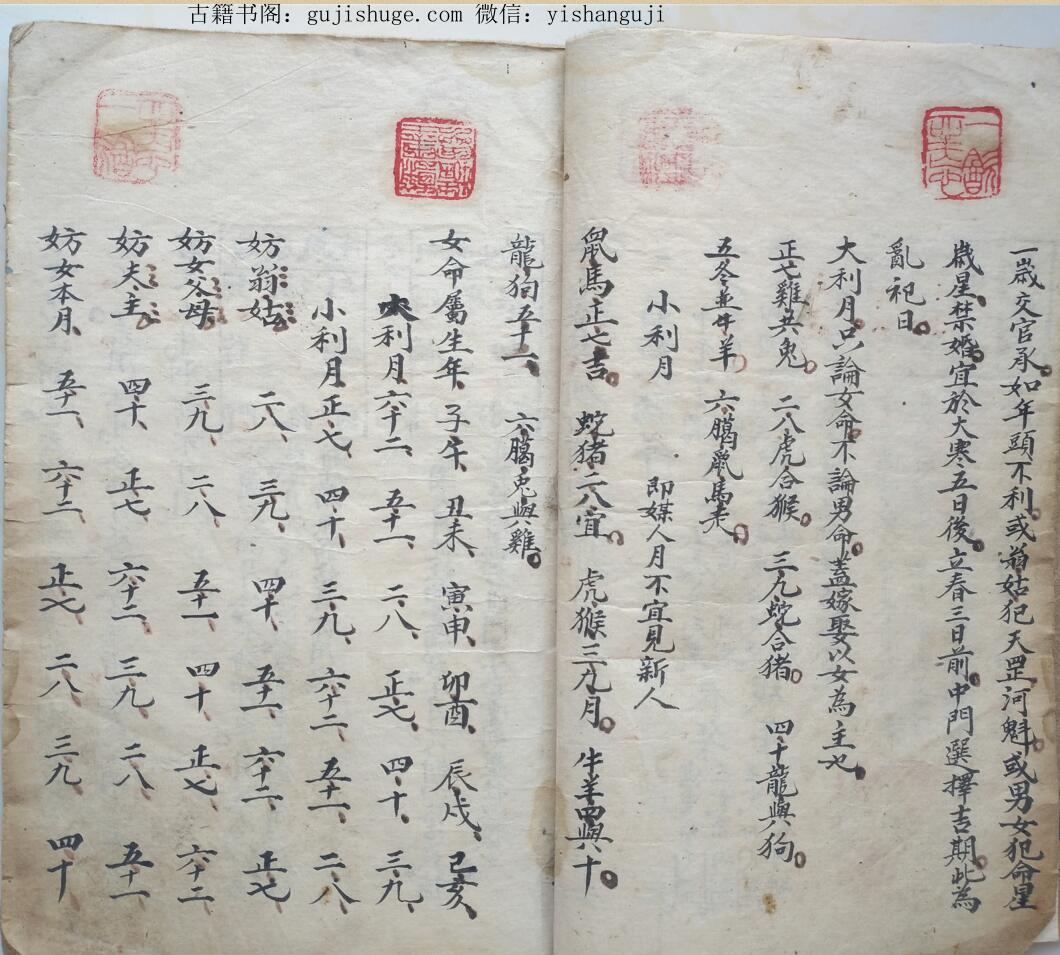 古籍书阁：gujishuge.com 微信：yishanguji
一歲交官承。如年頭不利。或翁姑犯天罡河魁。或男女犯命星
歲星。禁婚。宜於大寒五日後。立春三日前。中門選擇吉期。此為
亂祀日。
大利月。只論女命。不論男命。蓋嫁娶以女為主也。
正七雞共兔。 二八虎合猴。 三九蛇合猪。 四十龍與狗。
五冬並牛羊。 六臈鼠馬走。
小利月 即媒人月不宜見新人
鼠馬正七吉。 蛇猪二八宜。 虎猴三九月。 牛羊四與十。
龍狗五十一、 六臈兔與雞。
女命屬生年、子午、丑未、寅申、卯酉、辰戌、己亥、
大利月、六十二、五十一、二八、正七、四十、三九、
小利月 正七、四十、三九、六十二、五十一、二八、
妨翁姑 二八、三九、四十、五十一、六十二、正七、
妨女父母、三九、二八、五十一、四十、正七、六十二
妨夫主、四十、正七、六十二、三九、二八、五十一
妨女本月、五十一、六十二、正七、二八、三九、四十